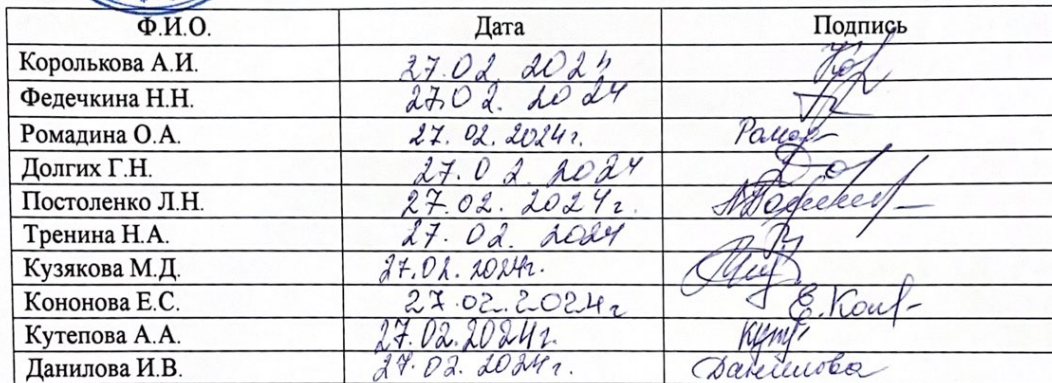 Ф.И.О. Дата Подпись
Королькова А.И. 27.02.2024
Федечкина Н.Н. 27.02.2024
Ромадина О.А. 27.02.2024г.
Долгих Г.Н. 27.02.2024
Постоленко Л.Н. 27.02.2024г.
Тренина Н.А. 27.02.2024
Кузякова М.Д. 27.02.2024г.
Кононова Е.С. 27.02.2024г
Кутепова А.А. 27.02.2024г.
Данилова И.В. 27.02.2024г. Данилова